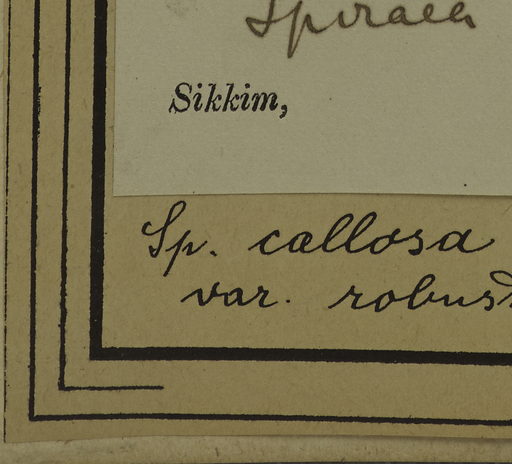 Spiraea
Sikkim,
Sp. callosa
var. robust